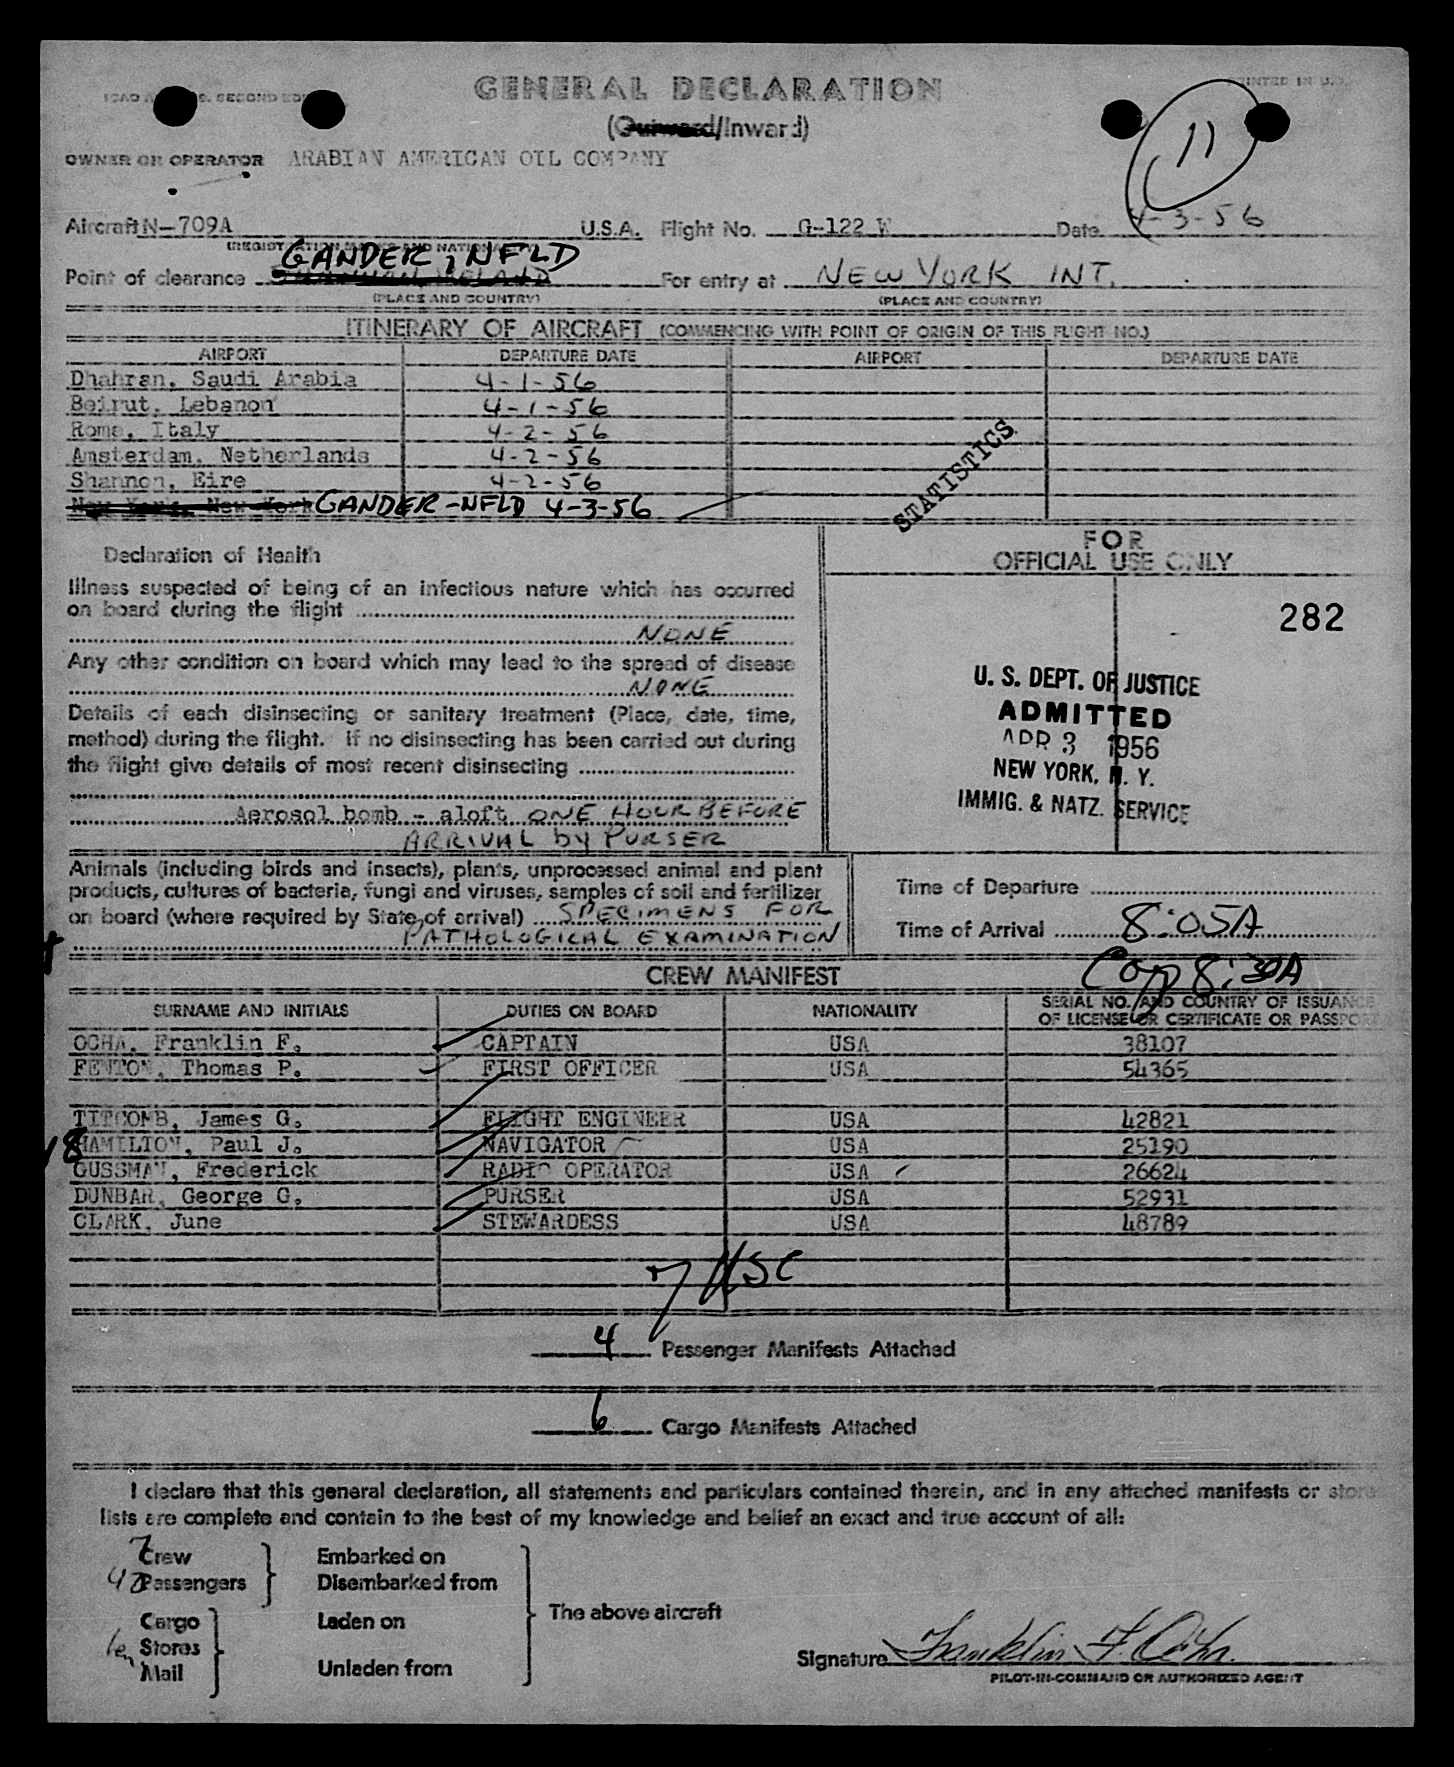 GENERAL DECLARATION
PRINTED IN U.S.
SECOND
(Outward/Inward)
11
OWNER OR OPERATOR ARABIAN AMERICAN OIL COMPANY
Aircraft N-709A U.S.A. Flight No. G-122 W Date 4-3-56
(REGISTRATION MARKS AND NATIONALITY)
GANDER, NFLD
Point of clearance SHANNON, IRELAND For entry at NEW YORK INT.
(PLACE AND COUNTRY) (PLACE AND COUNTRY)
ITINERARY OF AIRCRAFT (COMMENCING WITH POINT OF ORIGIN OF THIS FLIGHT NO.)
AIRPORT DEPARTURE DATE AIRPORT DEPARTURE DATE
Dhahran, Saudi Arabia 4-1-56
Beirut, Lebanon 4-1-56
Rome, Italy 4-2-56
Amsterdam, Netherlands 4-2-56
Shannon, Eire 4-2-56
New York, New York GANDER-NFLD 4-3-56
STATISTICS
Declaration of Health
Illness suspected of being of an infectious nature which has occurred
on board during the flight
NONE
Any other condition on board which may lead to the spread of disease
NONE
Details of each disinsecting or sanitary treatment (Place, date, time,
method) during the flight. If no disinsecting has been carried out during
the flight give details of most recent disinsecting
Aerosol bomb - aloft ONE HOUR BEFORE
ARRIVAL by PURSER
FOR
OFFICIAL USE ONLY
282
U. S. DEPT. OF JUSTICE
ADMITTED
APR 3 1956
NEW YORK, N. Y.
IMMIG. & NATZ. SERVICE
Animals (including birds and insects), plants, unprocessed animal and plant
products, cultures of bacteria, fungi and viruses, samples of soil and fertilizer
on board (where required by State of arrival) SPECIMENS FOR
PATHOLOGICAL EXAMINATION
Time of Departure
Time of Arrival 8:05A
8:30A
CREW MANIFEST
SURNAME AND INITIALS DUTIES ON BOARD NATIONALITY SERIAL NO. AND COUNTRY OF ISSUANCE
OF LICENSE OR CERTIFICATE OR PASSPORT
OCHA, Franklin F. CAPTAIN USA 38107
FENTON, Thomas P. FIRST OFFICER USA 54365
TITCOMB, James G. FLIGHT ENGINEER USA 42821
18 HAMILTON, Paul J. NAVIGATOR USA 25190
GUSSMAN, Frederick RADIO OPERATOR USA 26624
DUNBAR, George G. PURSER USA 52931
CLARK, June STEWARDESS USA 48789
7 USC
4 Passenger Manifests Attached
6 Cargo Manifests Attached
I declare that this general declaration, all statements and particulars contained therein, and in any attached manifests or store
lists are complete and contain to the best of my knowledge and belief an exact and true account of all:
7 Crew Embarked on
Passengers Disembarked from
The above aircraft
Cargo Laden on
Stores
Mail Unladen from
Signature Franklin F. Ocha
PILOT-IN-COMMAND OR AUTHORIZED AGENT